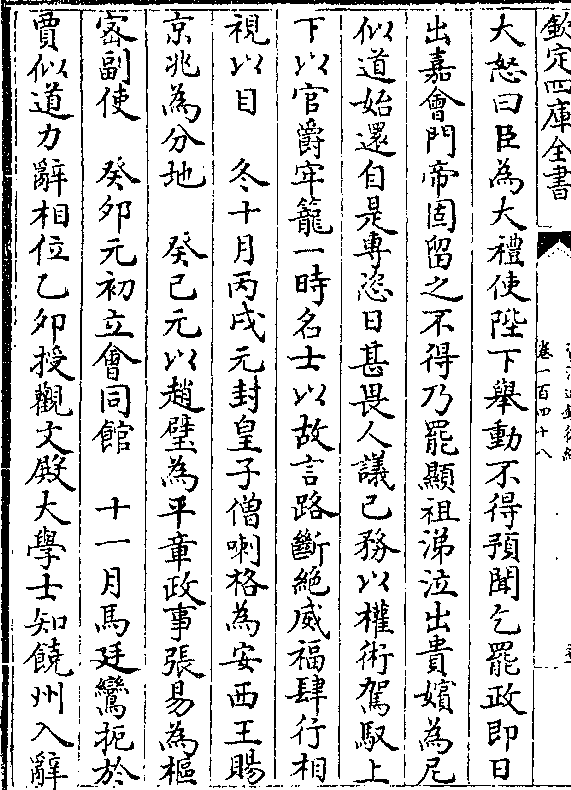 欽定四庫全書
卷一百四十八
大怒曰臣為大禮使陛下舉動不得預聞乞罷政即日
出嘉會門帝固留之不得乃罷顯祖涕泣出貴嬪為尼
似道始還自是專恣日甚畏人議己務以權術駕馭上
下以官爵牢籠一時名士以故言路斷絶威福肆行相
視以目　冬十月丙戌元封皇子僧喇格為安西王賜
京兆為分地　癸巳元以趙璧為平章政事張易為樞
宻副使　癸卯元初立會同館　十一月馬廷鸞扼於
賈似道力辭相位乙卯授觀文殿大學士知饒州入辭